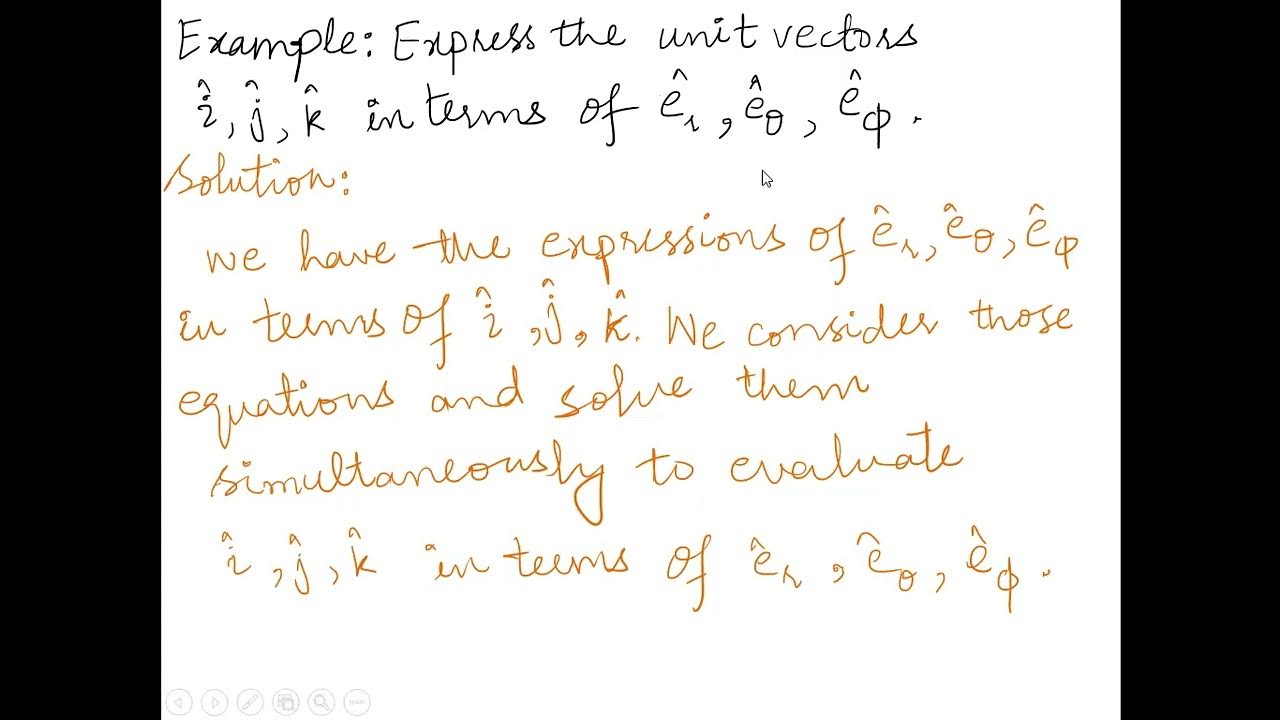 Example: Express the unit vectors
î, ĵ, k̂ in terms of ê_r, ê_θ, ê_ϕ.
Solution:
We have the expressions of ê_r, ê_θ, ê_ϕ
in terms of î, ĵ, k̂. We consider those
equations and solve them
simultaneously to evaluate
î, ĵ, k̂ in terms of ê_r, ê_θ, ê_ϕ.